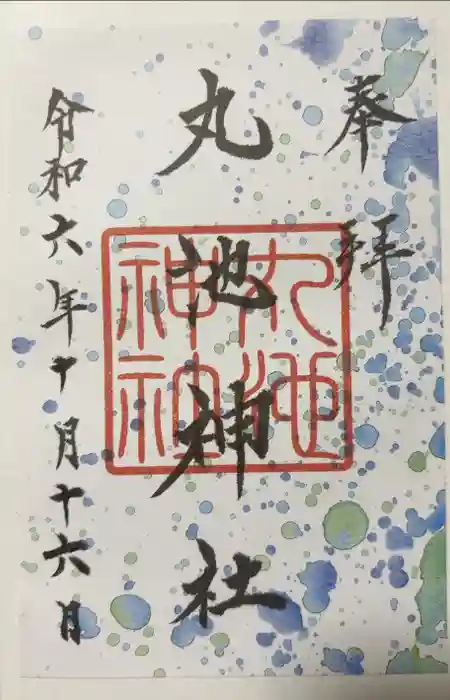 奉拝
丸池神社
丸池
神社
令和六年十月十六月